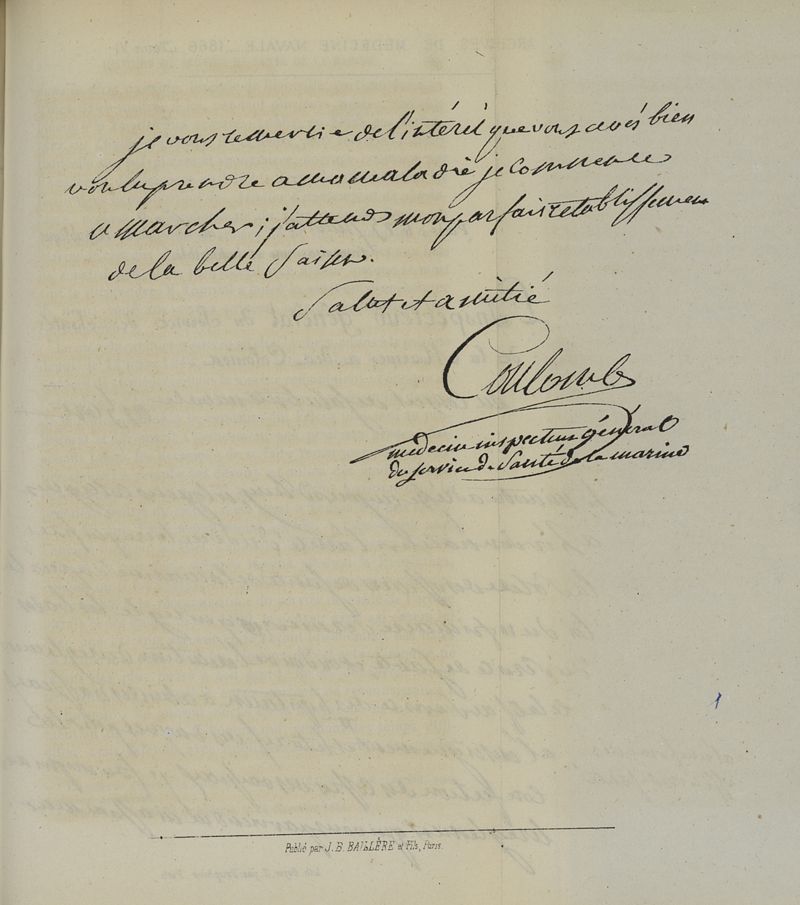 je vous remercie de l'intérêt que vous avés bien
voulu prendre a ma maladie je commence
a marcher ; j'attends mon parfait retablissement
de la belle saison.
Salut et amitié
Coulomb
medecin inspecteur général
du service de Santé de la marine
Publié par J. B. BAILLÈRE et Fils, Paris.